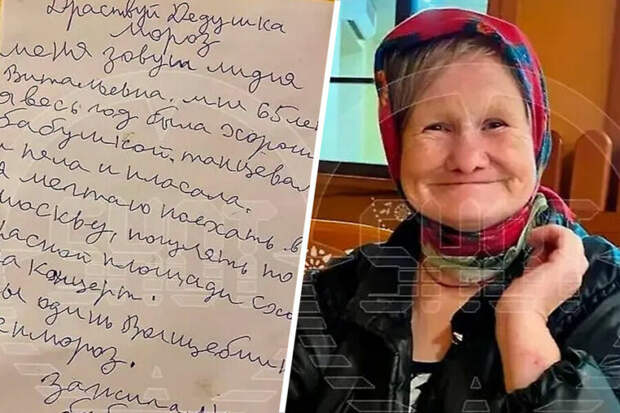 Здраствуй Дедушка
Мороз
меня зовут лидия
Витальевна. мне 65 лет
я весь год была хорош
бабушкой. танцевал
пела и плясала.
я мечтаю поехать в
москву, погулять по
расной площади схо
а концерт.
ы один Волщебник
мороз.